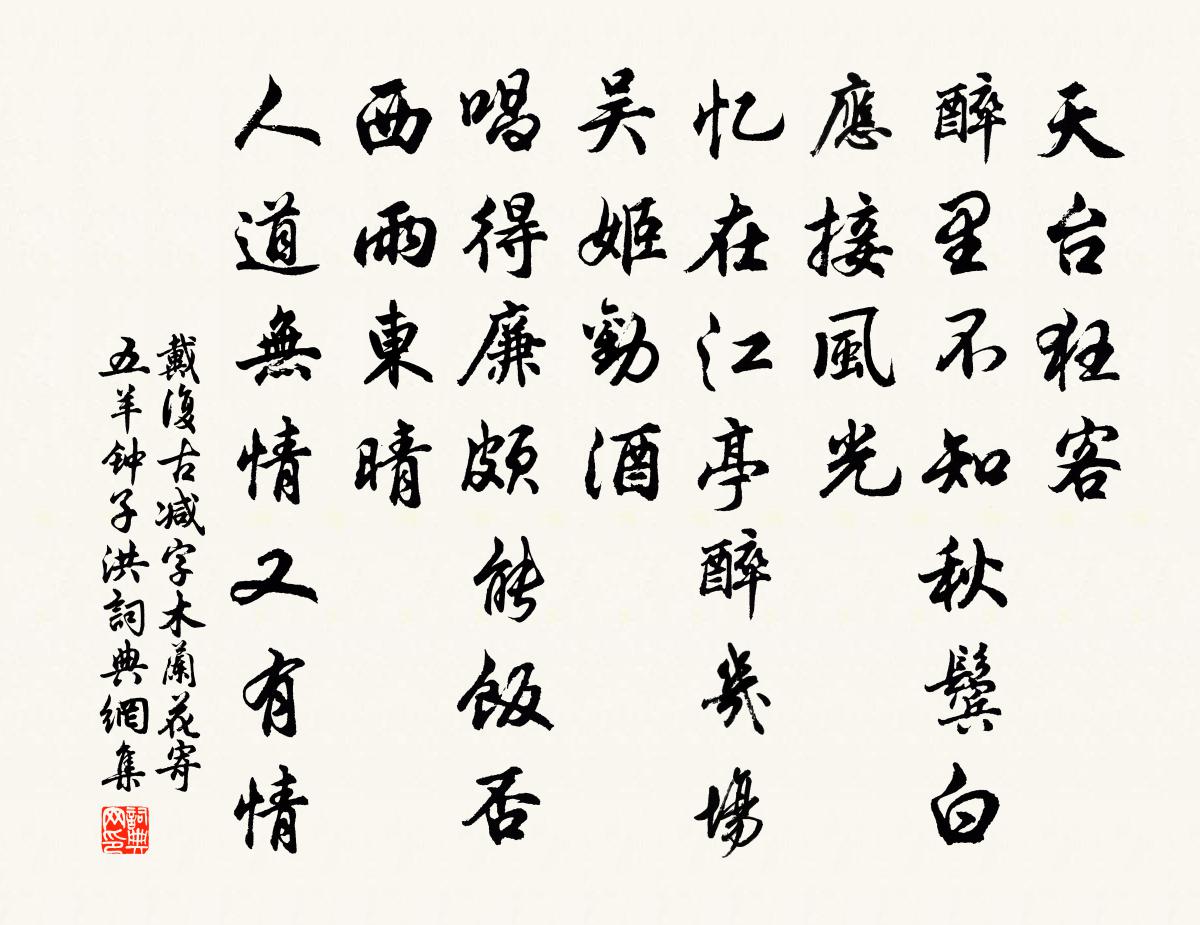 天台狂客
醉里不知秋鬓白
應接風光
忆在江亭醉幾場
吴姬勸酒
唱得廉颇能飯否
西雨東晴
人道無情又有情
戴復古减字木蘭花寄
五羊钟子洪詞典網集
詞典网印